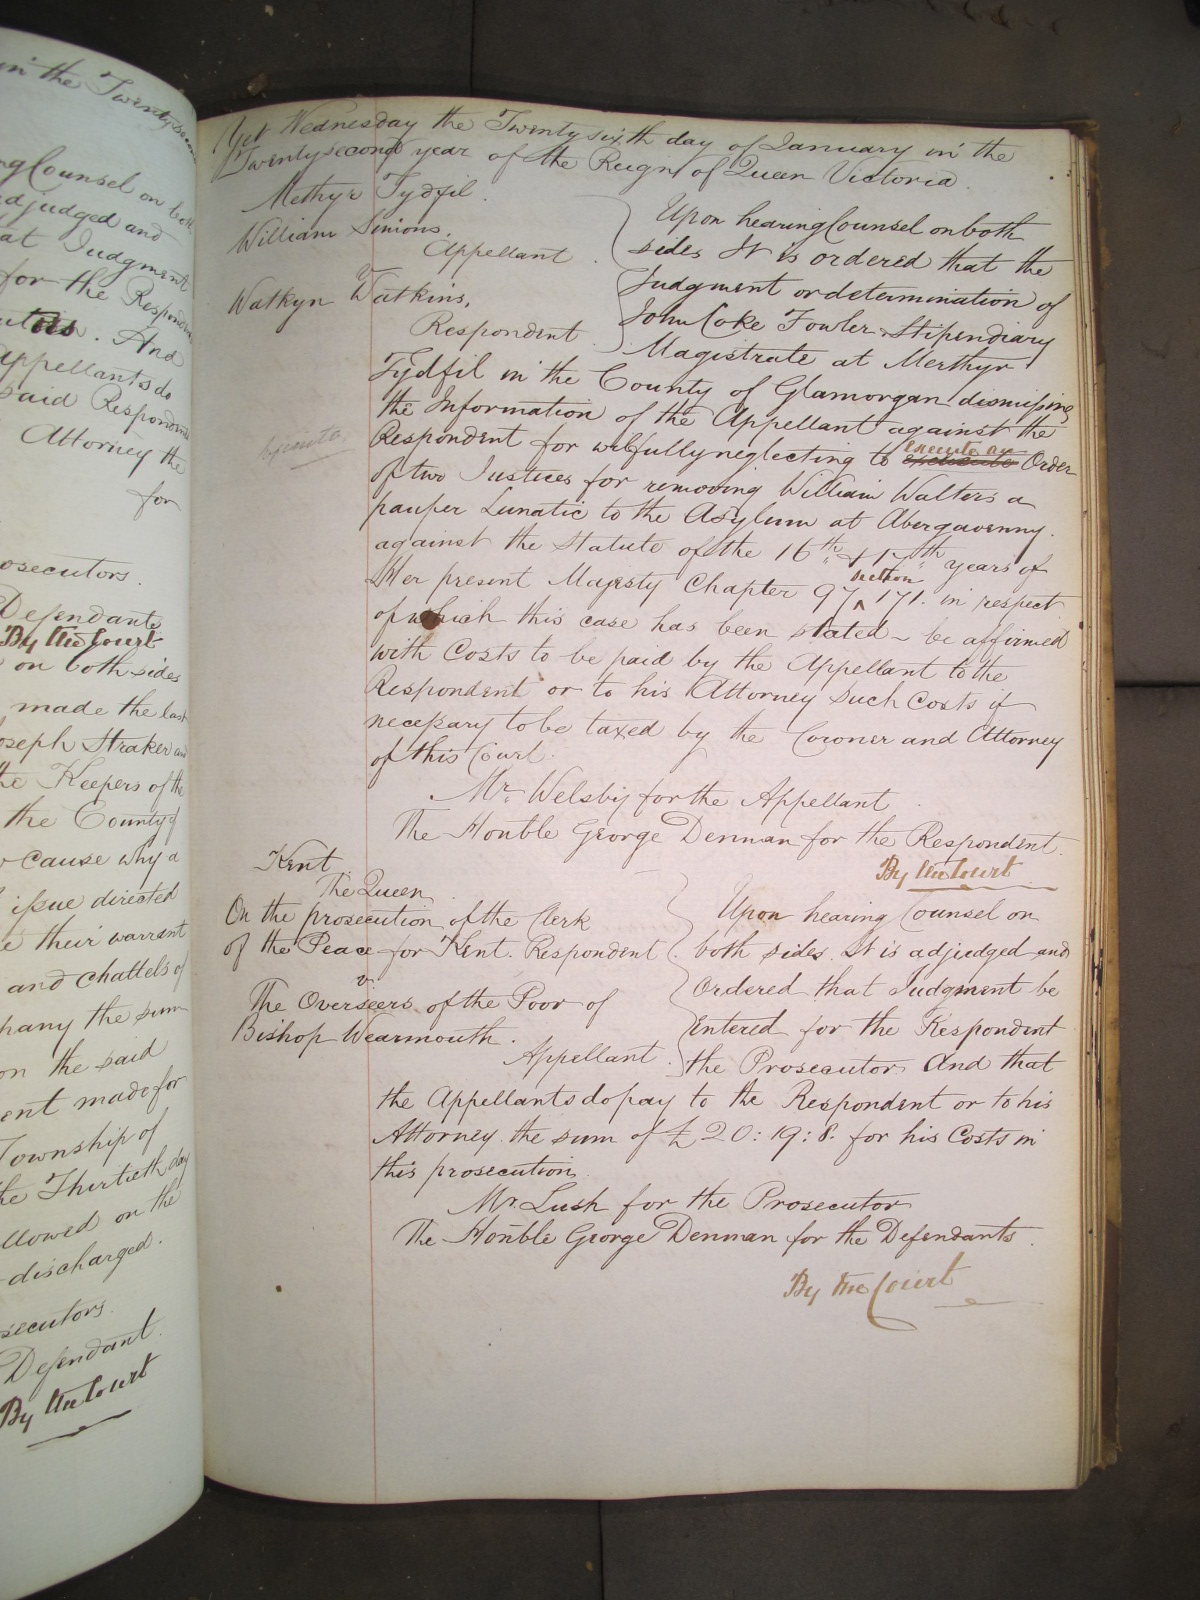 in the Twentysecon
ng Counsel on both
adjudged and
at Judgment
for the Respondent
And
Appellants do
said Respondents
Attorney the
for
osecutors.
Defendants
By the Court
on both sides
made the last
oseph Straker and
the Keepers of the
the County of
cause why a
issue directed
e their warrant
and chattels of
pany the sum
on the said
ent made for
Township of
the Thirtieth day
llowed on the
discharged.
secutors.
Defendant.
By the Court
Yet Wednesday the Twenty sixth day of January in the
Twentysecond year of the Reign of Queen Victoria.
Methyr Tydfil.
William Simons.
Appellant
Watkyn Watkins.
Respondent
Upon hearing Counsel on both
sides It is ordered that the
Judgment or determination of
John Coke Fowler Stipendiary
Magistrate at Merthyr
Tydfil in the County of Glamorgan dismissing
the Information of the Appellant against the
Respondent for wilfully neglecting to execute an Order
of two Justices for removing William Walters a
pauper Lunatic to the Asylum at Abergavenny.
against the Statute of the 16th & 17th years of
Her present Majesty Chapter 97 section 171. in respect
of which this case has been stated - be affirmed
with Costs to be paid by the Appellant to the
Respondent or to his Attorney such costs if
necessary to be taxed by the Coroner and Attorney
of this Court.
Mr. Welsby for the Appellant
The Honble George Denman for the Respondent.
By the Court
Kent
The Queen
On the prosecution of the Clerk
of the Peace for Kent. Respondent
v.
The Overseers of the Poor of
Bishop Wearmouth.
Appellant.
Upon hearing Counsel on
both sides. It is adjudged and
Ordered that Judgment be
Entered for the Respondent
the Prosecutor And that
the Appellants do pay to the Respondent or to his
Attorney the sum of £20:19:8. for his Costs in
this prosecution.
Mr. Lush for the Prosecutor
The Honble George Denman for the Defendants.
By the Court